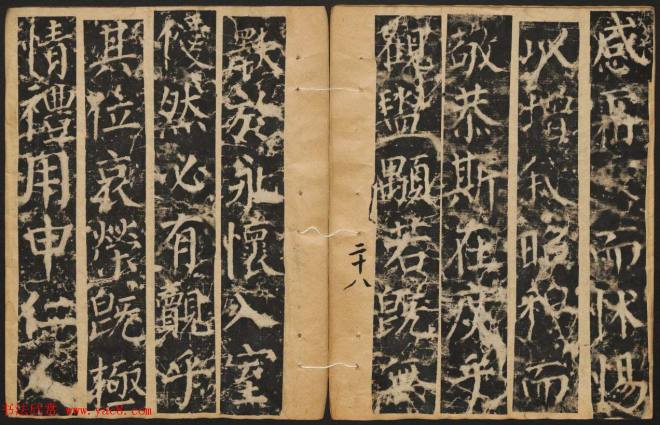 感而怵惕
以增昭穆而
敬恭斯在庶乎
觀盥顒若既無
二十八
歎於永懷入室
僾然必有覿乎
其位哀榮既極
情禮用申仁人
书法欣赏 www.yac8.com